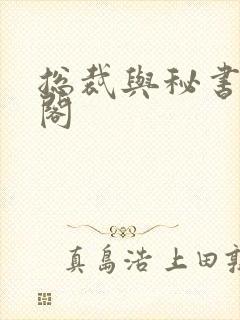 総裁與秘書
閣
真島浩 上田敦